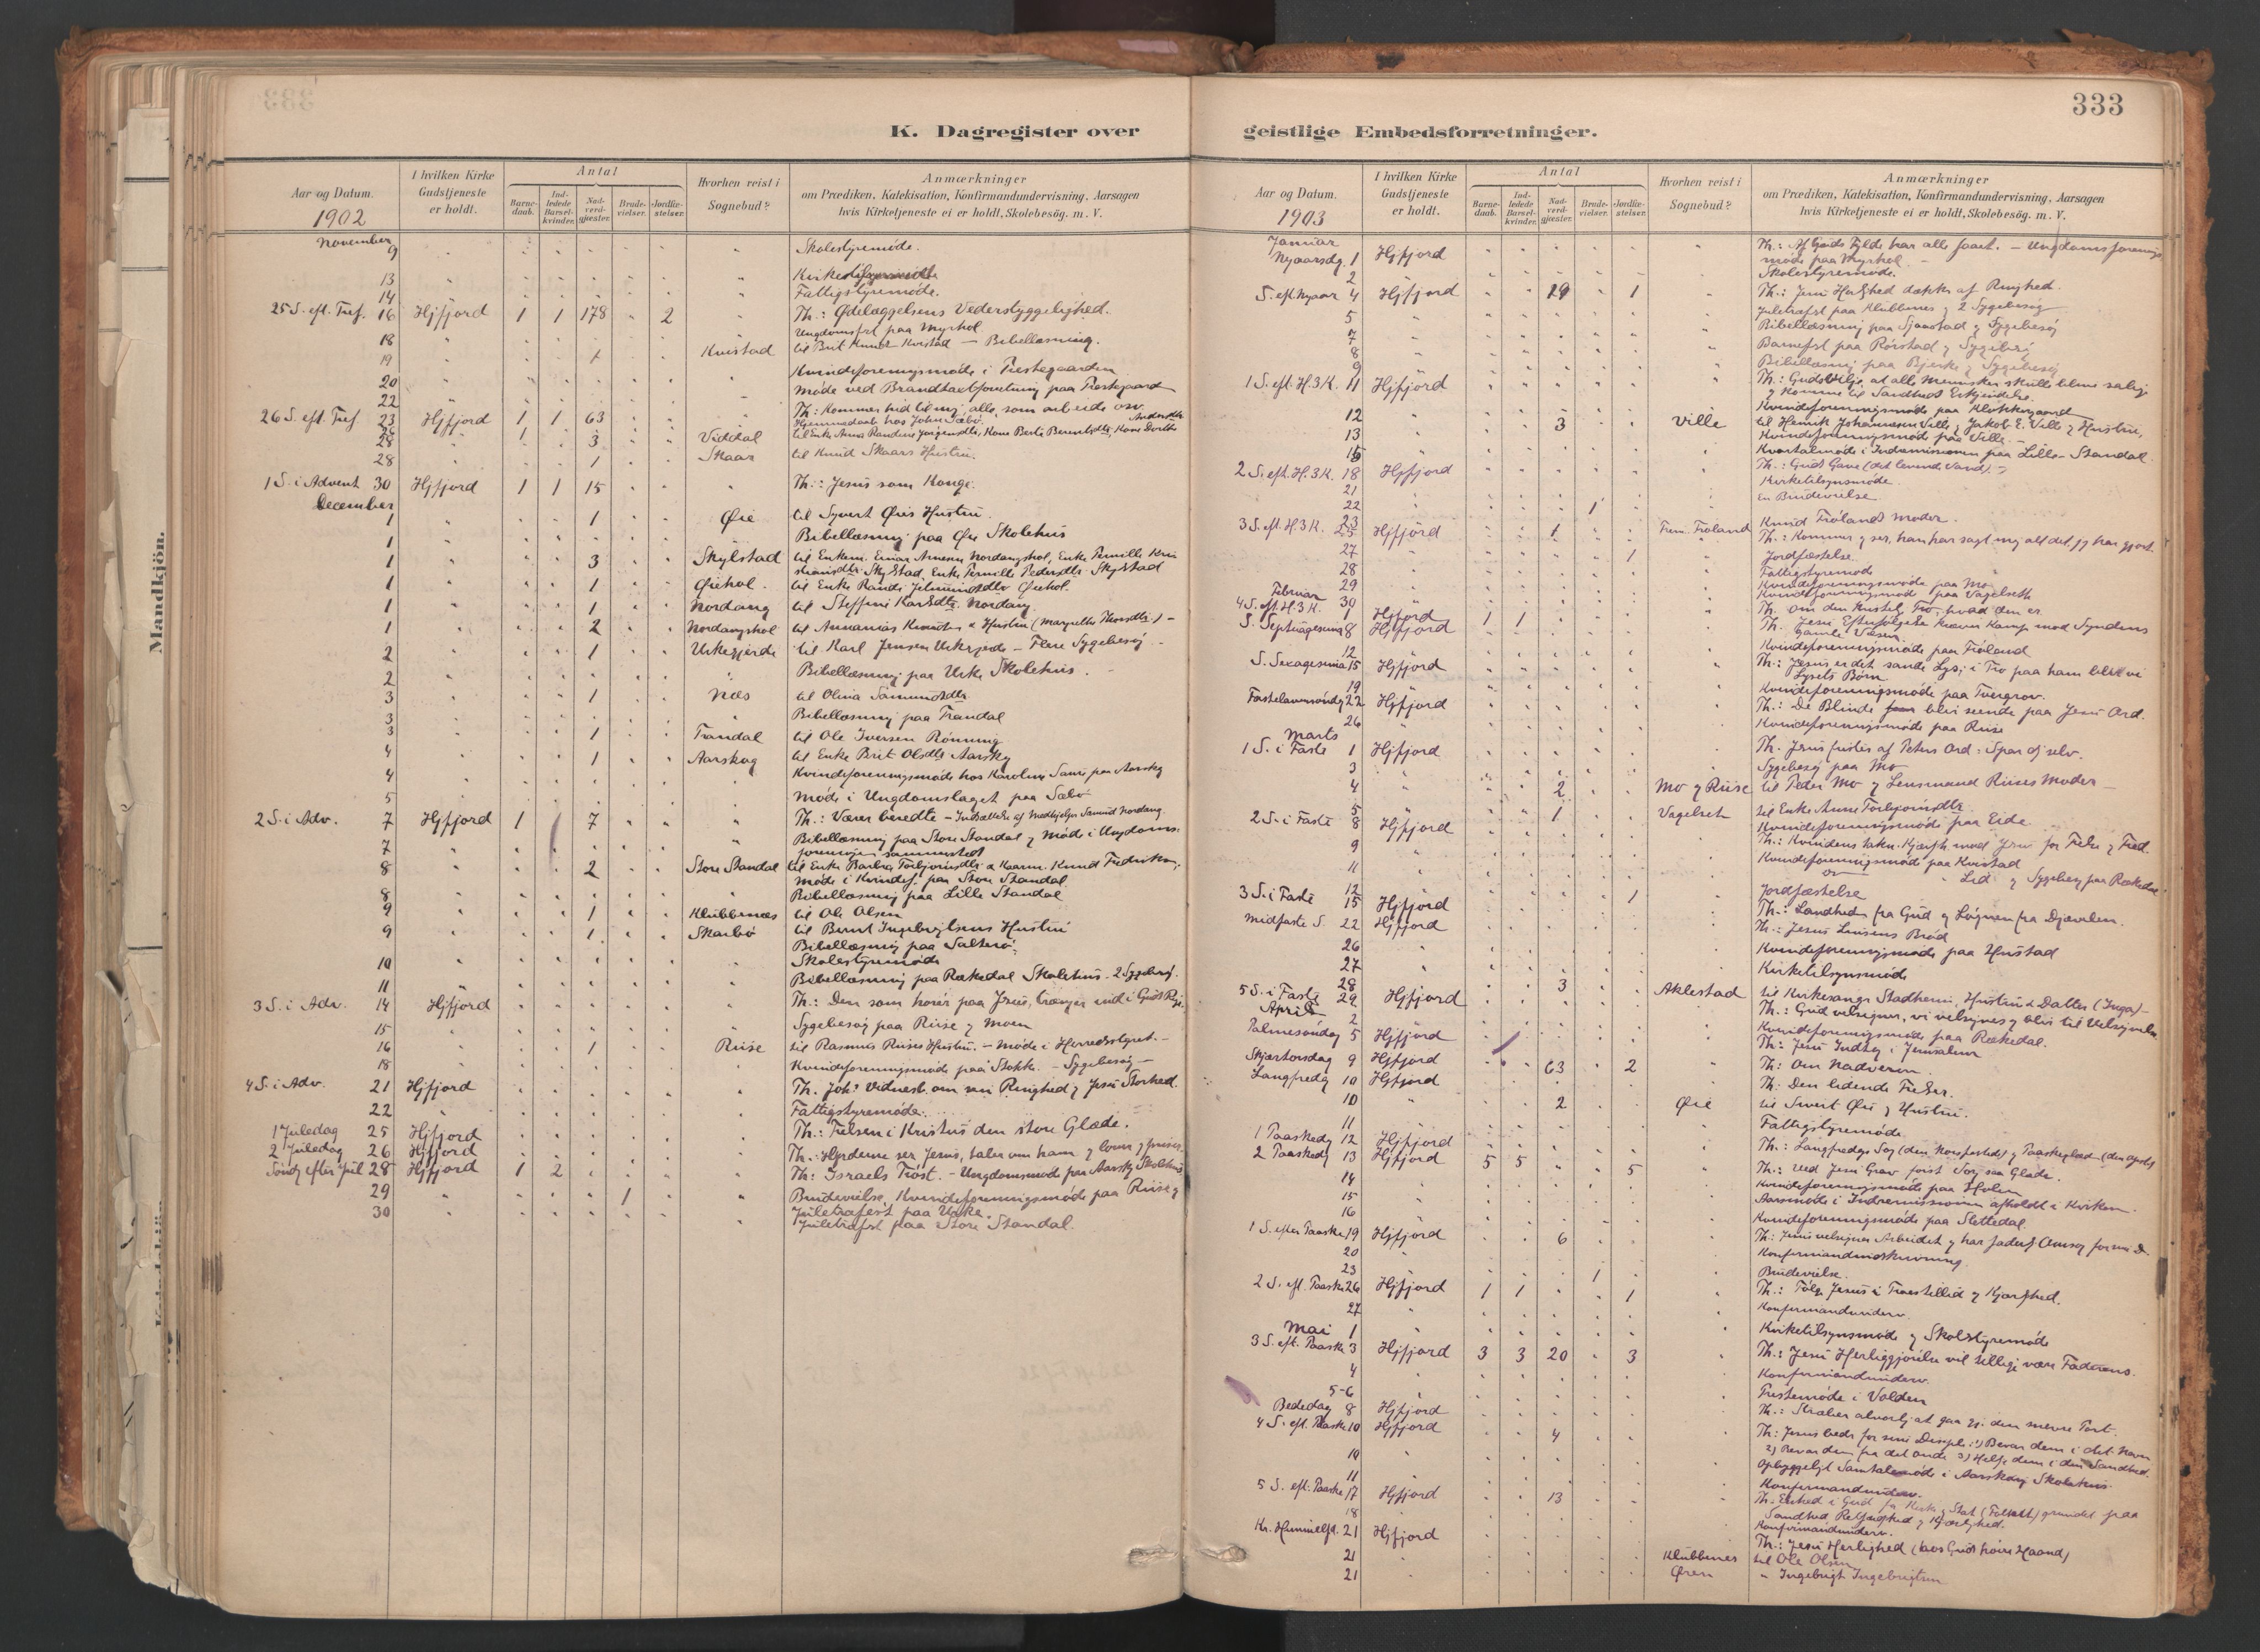 333
K. Dagregister over
geistlige Embedsforretninger.
Mandkjön.
Aar og Datum.
I hvilken Kirke Gudstjeneste er holdt.
Antal
Barnedaab.
Indledede Barselkvinder.
Nadverdgjester.
Brudevielser.
Jordfæstelser.
Hvorhen reist i Sognebud?
Anmærkninger
om Prædiken, Katekisation, Konfirmandundervisning, Aarsagen
hvis Kirketjeneste ei er holdt, Skolebesög. m. V.
1902
November
9 Skolestyremøde.
13
14 Fattigstyremøde.
25 S. eft. Tref. 16 Hjfjord 1 1 178 2 Th.: Ødelæggelsens Vederstyggelighed.
18 Ungdomsfest paa Myrhol
19 Kvistad til Brit Knuds Kvistad — Bibellæsning.
20 Kvindeforeningsmøde i Prestegaarden
22 Møde ved Brandtaxtforretning paa Prestegaard
26 S. eft. Tref 23 Hjfjord 1 1 63 Th: Kommer hid til mig, alle, som arbeide osv.
Hjemmedaab hos John Sæbø.
28 3 Viddal
28 1 Skaar til Knud Skaars Hustru.
1 S. i Advent 30 Hjfjord 1 1 15 Th.: Jesus som Konge.
December
1 1 Øie til Syvert Øies Hustru.
1 Bibellæsning paa Øie Skolehus
1 3 Skylstad
1 1 Øiehol.
1 1 Nordang til Steffine Karlsdtr. Nordang
1 2 Nordangshol
2 1 Urkegjerde til Karl Jensen Urkegjerde — Flere Sygebesøg
2 Bibellæsning paa Urke Skolehus.
3 1 Næs til Olina Samundsdtr.
3 Bibellæsning paa Trandal
3 1 Trandal til Ole Iversen Rønning
4 1 Aarskog til Enke Brit Olsdtr Aarskog
4 Kvindeforeningsmøde hos Karoline
5 Møde i Ungdomslaget paa Sæbø
2 S. i Adv. 7 Hjfjord 1 1 7 Th.: Værer beredte —
7 Bibellæsning paa Store Standal og Møde i Ungdomsforeningen sammesteds
8 2 Store Standal
Møde i Kvindef. paa Store Standal
8 Bibellæsning paa Lille Standal
9 1 Klubbenæs til Ole Olsen
9 1 Skarbø til Bernt Ingebrigtsens Hustru
Bibellæsning paa
10 Skolestyremøde
11 Bibellæsning paa Rækedal Skolehus - 2 Sygebesøg.
3 S. i Adv. 14 Hjfjord Th.: Den som hører paa Jesus, trænger ind i Guds Rige.
15 Sygebesøg paa Riise og Moen
16 1 Riise til Rasmus Riises Hustru. — Møde i Herredsstyret. —
18 Kvindeforeningsmøde paa Stokke. — Sygebesøg —
4 S. i Adv. 21 Hjfjord Th. Joh's Vidnesb. om sin Ringhed og Jesu Storhed.
22 Fattigstyremøde.
1 Juledag 25 Hjfjord Th.: Frelsen i Kristus den store Glæde.
2 Juledag 26 Hjfjord Th.: Hyrderne ser Jesus, taler om ham og lover og priser
Søndg efter Jul 28 Hjfjord 1 2 Th: Israels Trøst. — Ungdomsmøde paa Aarskog Skolehus
29 1 Brudevielse, Kvindeforeningsmøde paa Riise og
Juletræfest paa Urke.
30 Juletræfest paa Store Standal.
Aar og Datum.
I hvilken Kirke Gudstjeneste er holdt.
Antal
Barnedaab.
Indledede Barselkvinder.
Nadverdgjester.
Brudevielser.
Jordfæstelser.
Hvorhen reist i Sognebud?
Anmærkninger
om Prædiken, Katekisation, Konfirmandundervisning, Aarsagen
hvis Kirketjeneste ei er holdt, Skolebesög. m. V.
1903
Januar
Nyaarsdg. 1 Hjfjord Th.: Af Guds Fylde har alle faaet. — Ungdomsforeningsmøde paa Myrhol. —
2 Skolestyremøde.
S. eft. Nyaar 4 Hjfjord 29 1 Th.: Jesu Høihed dækkes af Ringhed.
5 Juletræfest paa Klubbenes og 2 Sygebesøg
7 Bibellæsning paa Sjaastad og Sygebesøg
8 Barnefest paa Rørstad og Sygebesøg
9 Bibellæsning paa Bjerke og Sygebesøg
1 S. eft. H.3K. 11 Hjfjord Th.: Guds Vilje, at alle Mennesker skulle blive salige
og komme til Sandheds Erkjendelse.
12 Kvindeforeningsmøde paa Klokkergaard
13 3 Ville til Henrik Johannesen Ville og Jakob E. Ville og Hustru,
Kvindeforeningsmøde paa Ville. —
15 Kvartalmøde i Indremissionen paa Lille-Standal.
2 S. eft. H.3K. 18 Hjfjord Th.: Guds Gave (det levende Vand). —
21 Kirketilsynsmøde
22 1 En Brudevielse
23 1 Frem. Frøland Knud Frølands Moder.
3 S. eft. H.3K. 25 Hjfjord Th.: Kommer og ser, han har sagt mig alt det, jeg har gjort.
27 1 Jordfæstelse.
28 Fattigstyremøde
29 Kvindeforeningsmøde paa Mo
30 Kvindeforeningsmøde paa Vagelseth
Februar
4 S. eft. H.3K. 1 Hjfjord 1 1 Th. om den kristelig Tro, hvad den er.
S. Septuagesima 8 Hjfjord Th. Jesu Efterfølgelse kræver Kamp mod Syndens
gamle Væsen
12 Kvindeforeningsmøde paa Frøland
S. Sexagesima 15 Hjfjord Th.: Jesus er det sande Lys; i Tro paa ham blive vi
Lysets Børn
19 Kvindeforeningsmøde paa Tvergrov.
Fastelavnsøndg 22 Hjfjord Th.: De Blinde blive seende paa Jesu Ord.
26 Kvindeforeningsmøde paa Riise
Marts
1 S. i Faste 1 Hjfjord Th. Jesus fristes af Peters Ord: Spar dig selv.
3 Sygebesøg paa Mo
4 2 Mo og Riise til Peder Mo og Lensmand Riises Moder —
5 1 Vagelset til Enke Anne Torbjørnsdtr.
Kvindeforeningsmøde paa Eide
2 S. i Faste 8 Hjfjord
9 Kvindeforeningsmøde paa Kvistad
11 Lid og Sygebesøg paa Rækedal
12 1 Jordfæstelse
3 S. i Faste 15 Hjfjord Th.: Sandheden fra Gud og Løgnen fra Djævelen.
Midfaste S. 22 Hjfjord Th.: Jesus Livsens Brød
26 Kvindeforeningsmøde paa Hustad
27 Kirketilsynsmøde
28 3 Aklestad til Kirkesanger Stadheim, Hustru & Datter (Inga) —
5 S. i Faste 29 Hjfjord
April
2 Kvindeforeningsmøde paa Rækedal.
Palmesøndag 5 Hjfjord Th: Jesu Indtog i Jerusalem
Skjærtorsdag 9 Hjfjord 63 2 Th: Om Nadveren.
Langfredg 10 Hjfjord Th: Den lidende Frelser.
10 2 Øie til Sivert Øie og Hustru.
11 Fattigstyremøde.
1 Paaskedg 12 Hjfjord Th.: Langfredags Sorg (den korsfæstede) og Paaskeglæd (den opst)
2 Paaskedg 13 Hjfjord 5 5 5 Th.: Ved Jesu Grav først Sorg saa Glæde.
14 Kvindeforeningsmøde paa Holen
15 Aarsmøde i Indremissionen afholdt i Kirken.
16 Kvindeforeningsmøde paa Slettedal.
1 S. efter Paaske 19 Hjfjord 6
20 Konfirmandindskrivning
23 1 Brudevielse.
2 S. eft. Paaske 26 Hjfjord 1 1 1 Th.: Følg Jesus i Troestillid og Kjærlhed.
27 Konfirmandunderv.
Mai 1 Kirketilsynsmøde og Skolestyremøde
3 S. eft. Paaske 3 Hjfjord 3 3 20 3 Th.: Jesu Herliggjørelse vil tillige være Faderens.
4 Konfirmandunderv.
5-6 Prestemøde i Volden
Bededag 8 Hjfjord Th.: Stræber alvorlig at gaa gj. den snevre Port.
4 S. eft. Paaske 10 Hjfjord 4 Th: Jesus beder for sine Disciple: 1) Bevar dem i dit Navn
2) Bevar dem fra det onde 3) Hellige dem i din Sandhed.
10 Opbyggeligt Samtalemøde i Aarskog Skolehus.
11 Konfirmandunderv.
5 S. eft. Paaske 17 Hjfjord 13 Th. Enhed i Gud for Kirke og Stat (Folkett) grundet paa
Sandhed, Retfærdighed og Kjærlighed.
18 Konfirmandunderv.
Kr. Himmelf. 21 Hjfjord Th.: Jesu Herlighed (hos Guds høire Haand)
21 Klubbenes til Ole Olsen
21 Øren " Ingebrigt Ingebrigtsen